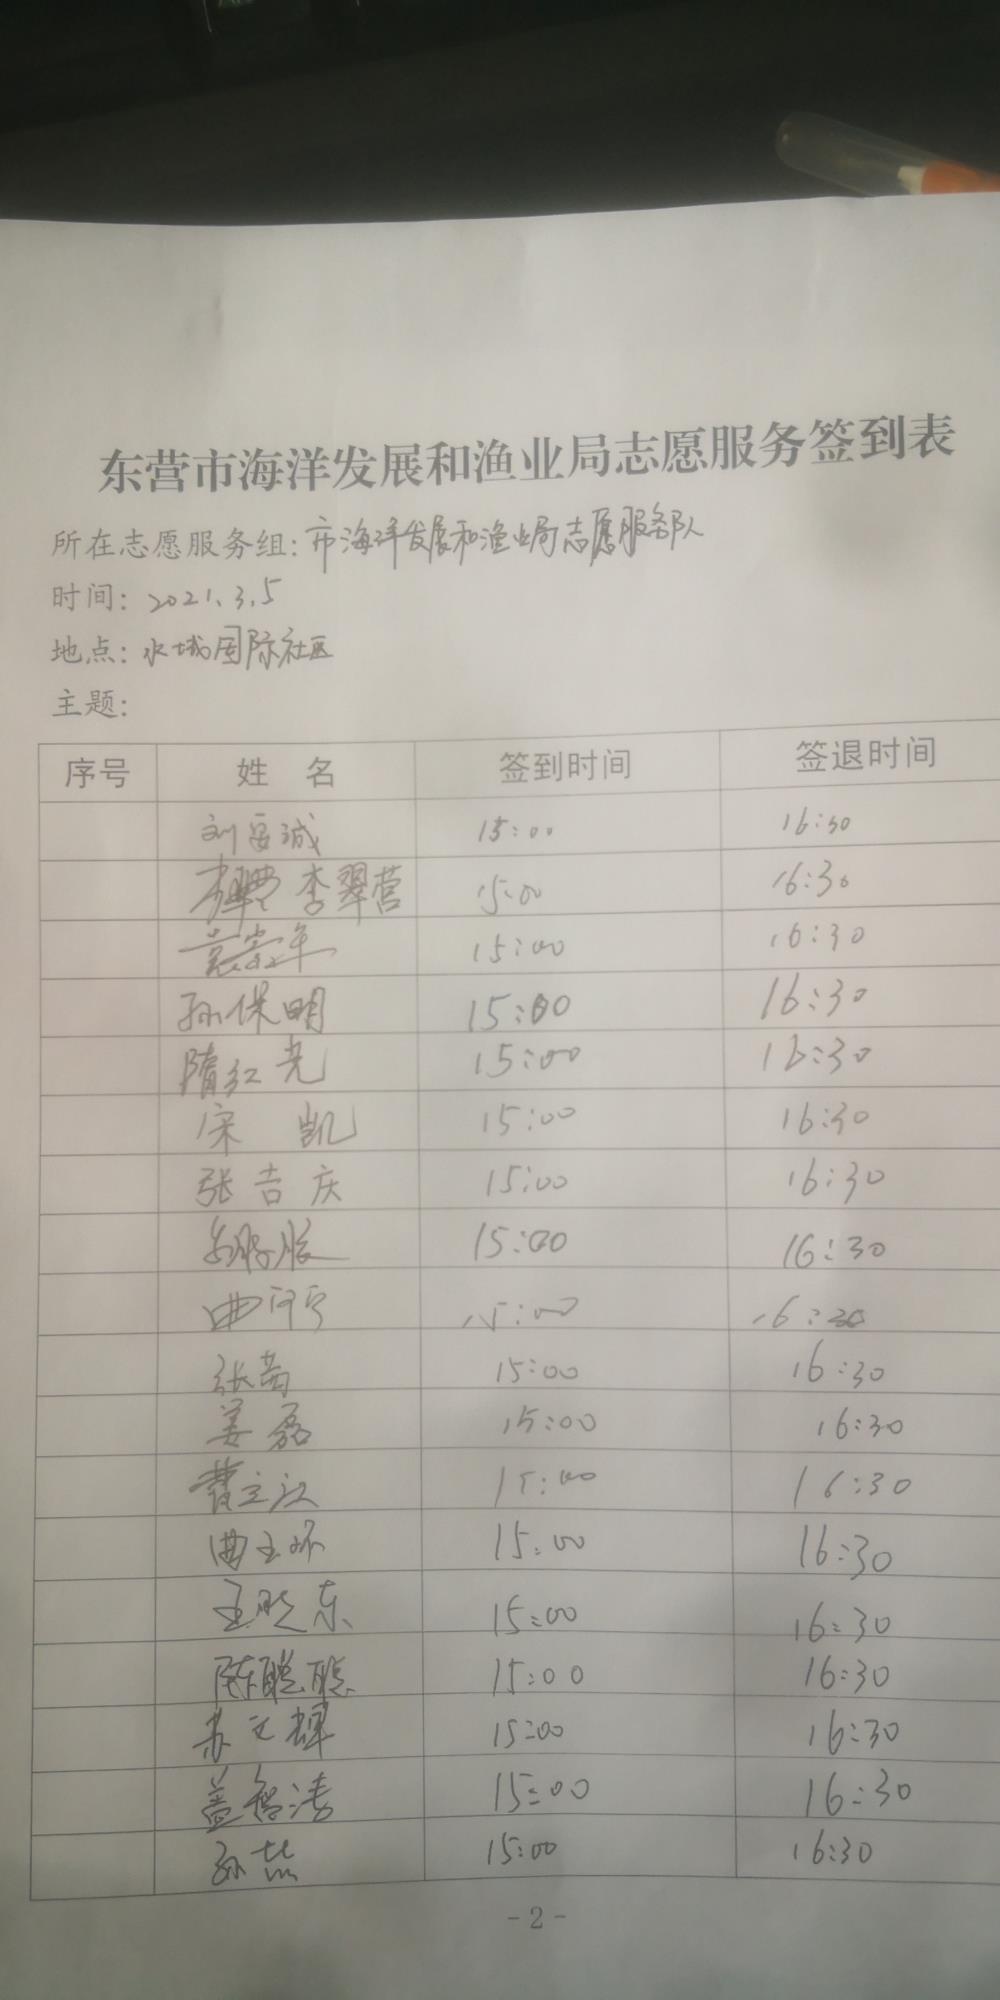 东营市海洋发展和渔业局志愿服务签到表
所在志愿服务组:市海洋发展和渔业局志愿服务队
时间:2021.3.5
地点:水城国际社区
主题:
序号 姓 名 签到时间 签退时间
刘 诚 15:00 16:30
李翠营 15:00 16:30
袁 年 15:00 16:30
孙保明 15:00 16:30
隋红光 15:00 16:30
宋 凯 15:00 16:30
张吉庆 15:00 16:30
15:00 16:30
曲 15:00 16:30
张苗 15:00 16:30
姜磊 15:00 16:30
曹立 15:00 16:30
曲玉环 15:00 16:30
王晓东 15:00 16:30
陈聪聪 15:00 16:30
苏文辉 15:00 16:30
盖 涛 15:00 16:30
孙 15:00 16:30
-2-